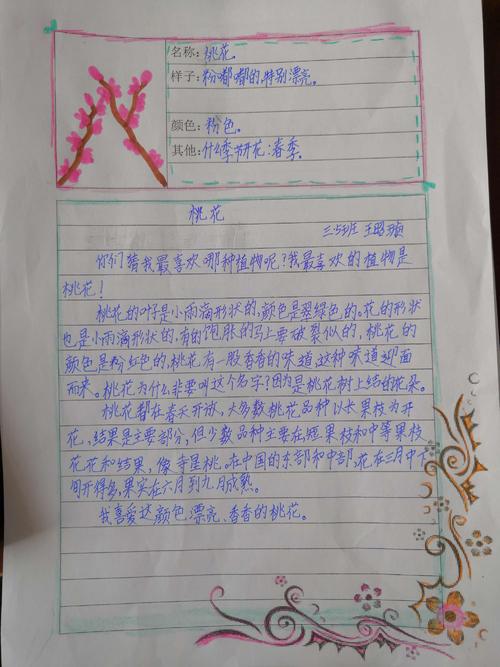 名称：桃花。
样子：粉嘟嘟的，特别漂亮。
颜色：粉色。
其他：什么季节开花：春季。
桃花
三5班 王昭
你们猜我最喜欢哪种植物呢？我最喜欢的植物是
桃花！
桃花的叶子是小雨滴形状的，颜色是翠绿色的。花的形状
也是小雨滴形状的，有的饱胀的马上要破裂似的，桃花的
颜色是粉红色的，桃花有一股香香的味道，这种味道迎面
而来。桃花为什么非要叫这个名字？因为是桃花树上结的花朵。
桃花都在春天开放，大多数桃花品种以长果枝为开
花，结果是主要部分，但少数品种主要在短果枝和中等果枝
花花和结果，像寺星桃。在中国的东部和中部，花在三月中下
旬开得多，果实在六月到九月成熟。
我喜爱这颜色漂亮、香香的桃花。